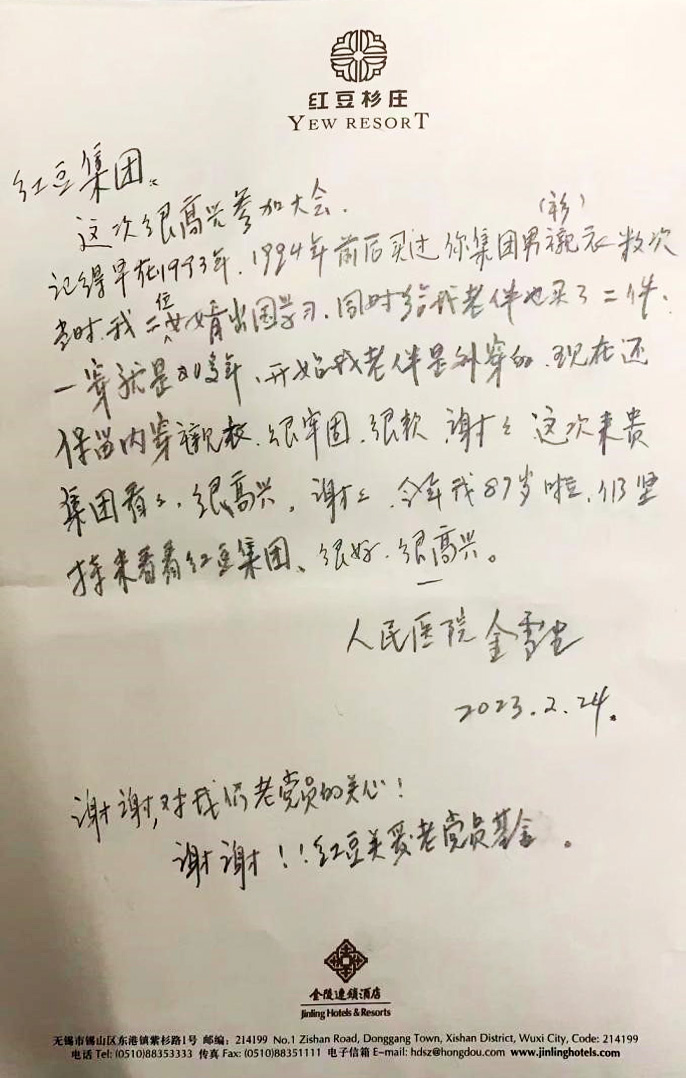 红豆杉庄
YEW RESORT
红豆集团：
这次很高兴参加大会.
(衫)
记得早在1993年.1994年前后买过你集团男襯衣数次
位
当时.我二女婿出国学习.同时给我老伴也买了二件.
一穿就是20多年.开始我老伴是外穿的.现在还
保留内穿襯衣.很牢固.很软.谢々这次来贵
集团看々.很高兴.谢々.今年我87岁啦.仍坚
持来看看红豆集团、很好.很高兴。
人民医院 金雪
2023.2.24.
谢谢,对我们老党员的关心!
谢谢!!红豆关爱老党员基金。
金陵連鎖酒店
Jinling Hotels & Resorts
无锡市锡山区东港镇紫杉路1号 邮编：214199 No.1 Zishan Road, Donggang Town, Xishan District, Wuxi City, Code: 214199
电话 Tel: (0510)88353333 传真 Fax: (0510)88351111 电子信箱 E-mail: hdsz@hongdou.com www.jinlinghotels.com